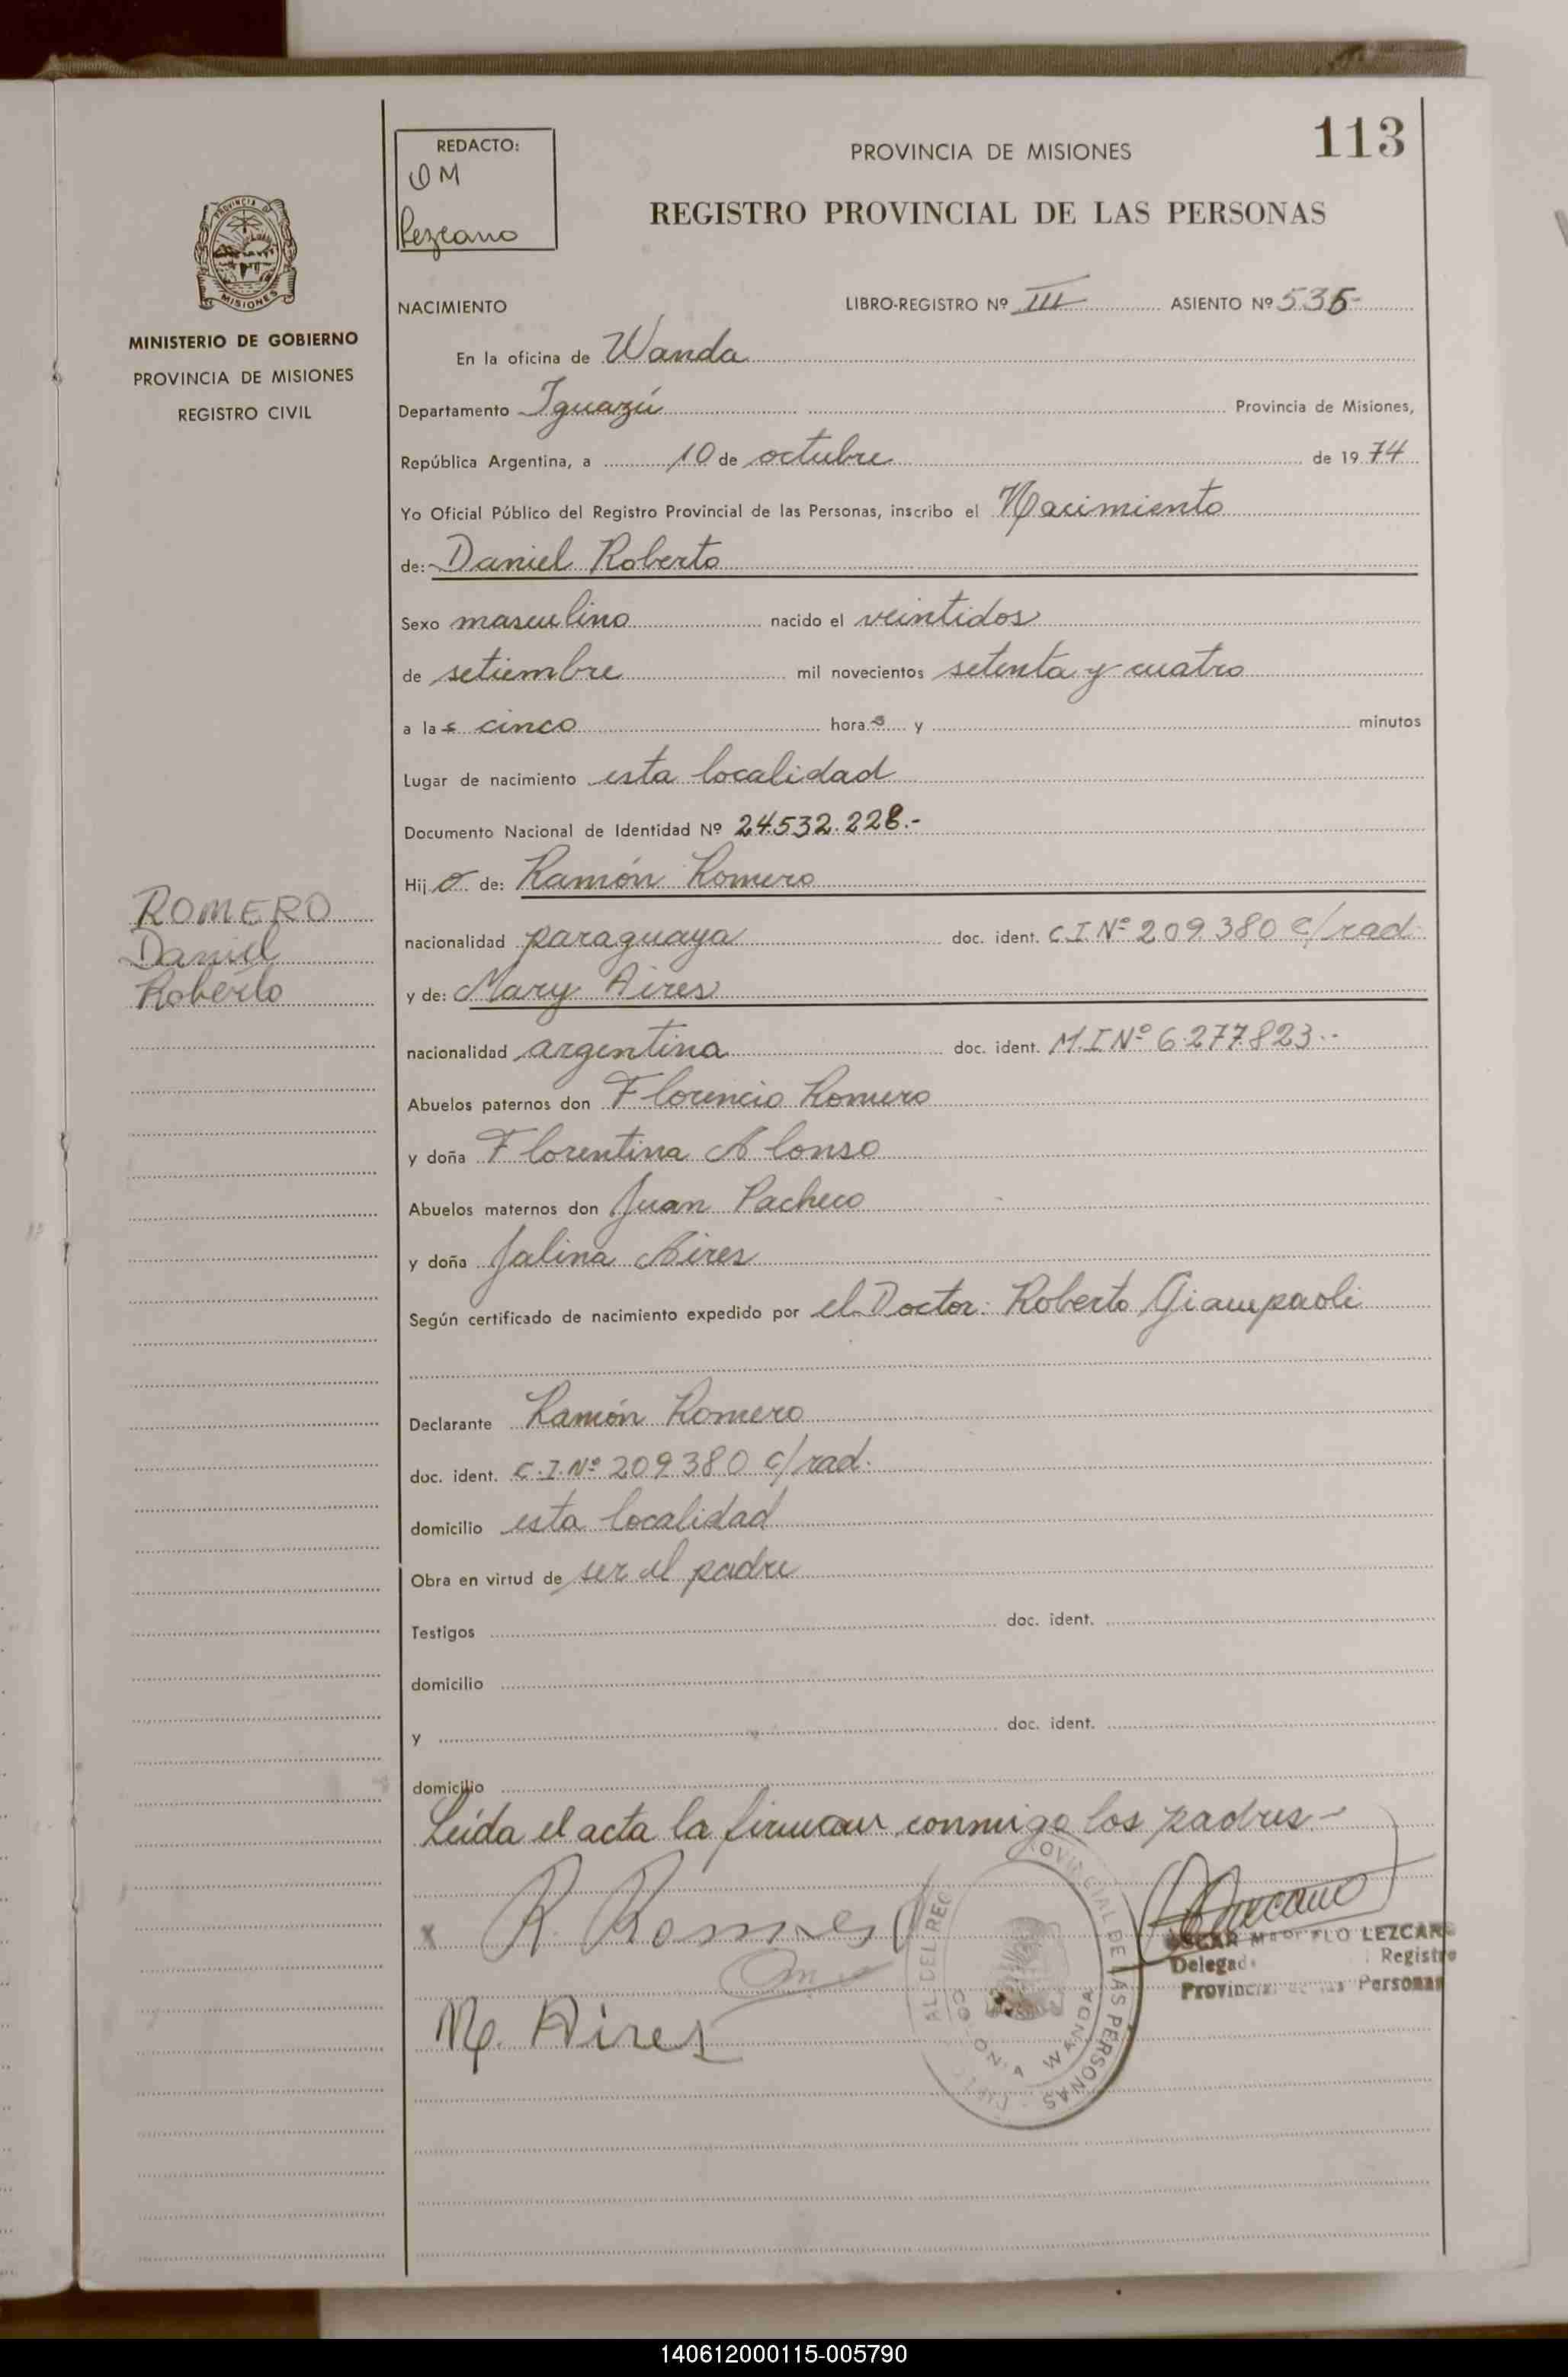 113
REDACTO:
OM
Lezcano
PROVINCIA DE MISIONES
REGISTRO PROVINCIAL DE LAS PERSONAS
PROVINCIA DE
MISIONES
MINISTERIO DE GOBIERNO
PROVINCIA DE MISIONES
REGISTRO CIVIL
NACIMIENTO LIBRO-REGISTRO Nº III ASIENTO Nº 535-
En la oficina de Wanda
Departamento Iguazú Provincia de Misiones,
República Argentina, a 10 de octubre de 1974
Yo Oficial Público del Registro Provincial de las Personas, inscribo el Nacimiento
de: Daniel Roberto
Sexo masculino nacido el veintidos
de setiembre mil novecientos setenta y cuatro
a las cinco horas y minutos
Lugar de nacimiento esta localidad
Documento Nacional de Identidad Nº 24.532.228.-
Hijo de: Ramón Romero
ROMERO
Daniel
Roberto
nacionalidad paraguaya doc. ident. C.I.Nº 209.380 c/rad.
y de: Mary Aires
nacionalidad argentina doc. ident. M.I Nº 6.277.823.-
Abuelos paternos don Florencio Romero
y doña Florentina Alonso
Abuelos maternos don Juan Pacheco
y doña Jalina Aires
Según certificado de nacimiento expedido por el Doctor: Roberto Giampaoli
Declarante Ramón Romero
doc. ident. C.I.Nº 209.380 c/rad.
domicilio esta localidad
Obra en virtud de ser el padre
Testigos doc. ident.
domicilio
y doc. ident.
domicilio
Leída el acta la firman conmigo los padres-
x R. Romero
M. Aires
WANDA
DE LAS PERSONAS
LEZCANO
Delegado Registro
Provincial de las Personas
140612000115-005790